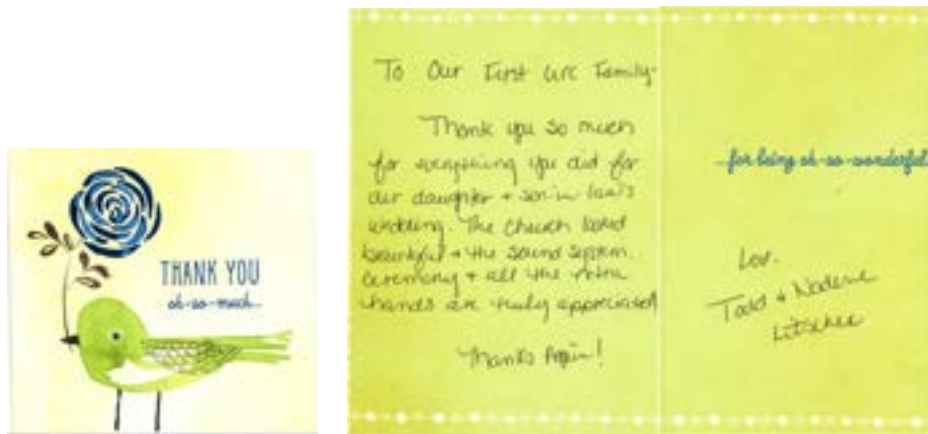 THANK YOU
oh-so-much...
To Our First UCC Family-
Thank you so much
for everything you did for
our daughter + son-in-law's
wedding. The Church looked
beautiful + the sound system,
Ceremony + all the extra
hands are truly appreciated
Thanks Again!
...for being oh-so-wonderful
Love,
Todd + Nadene